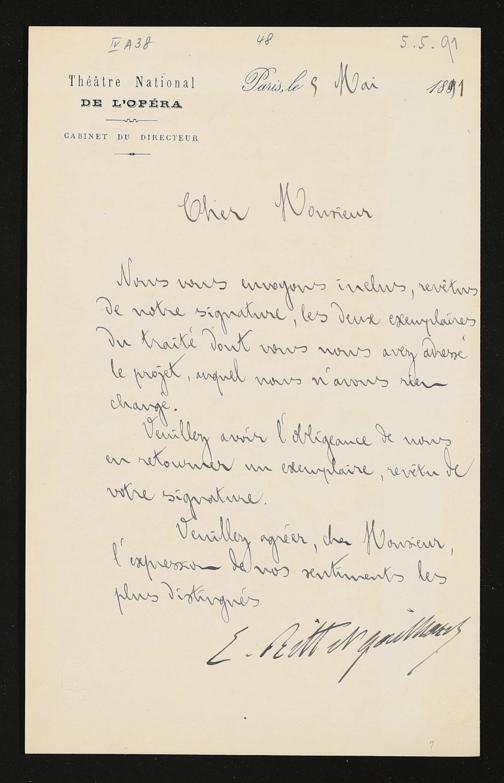 IV A 38 48 5.5.91
Théâtre National
DE L'OPÉRA
CABINET DU DIRECTEUR
Paris, le 5 Mai 1891
Cher Monsieur
Nous vous envoyons inclus, revêtus
de notre signature, les deux exemplaires
du traité dont vous nous avez adressé
le projet, auquel nous n'avons rien
changé.
Veuillez avoir l'obligeance de nous
en retourner un exemplaire, revêtu de
votre signature.
Veuillez agréer, cher Monsieur,
l'expression de nos sentiments les
plus distingués
E. Ritt et Gailhard